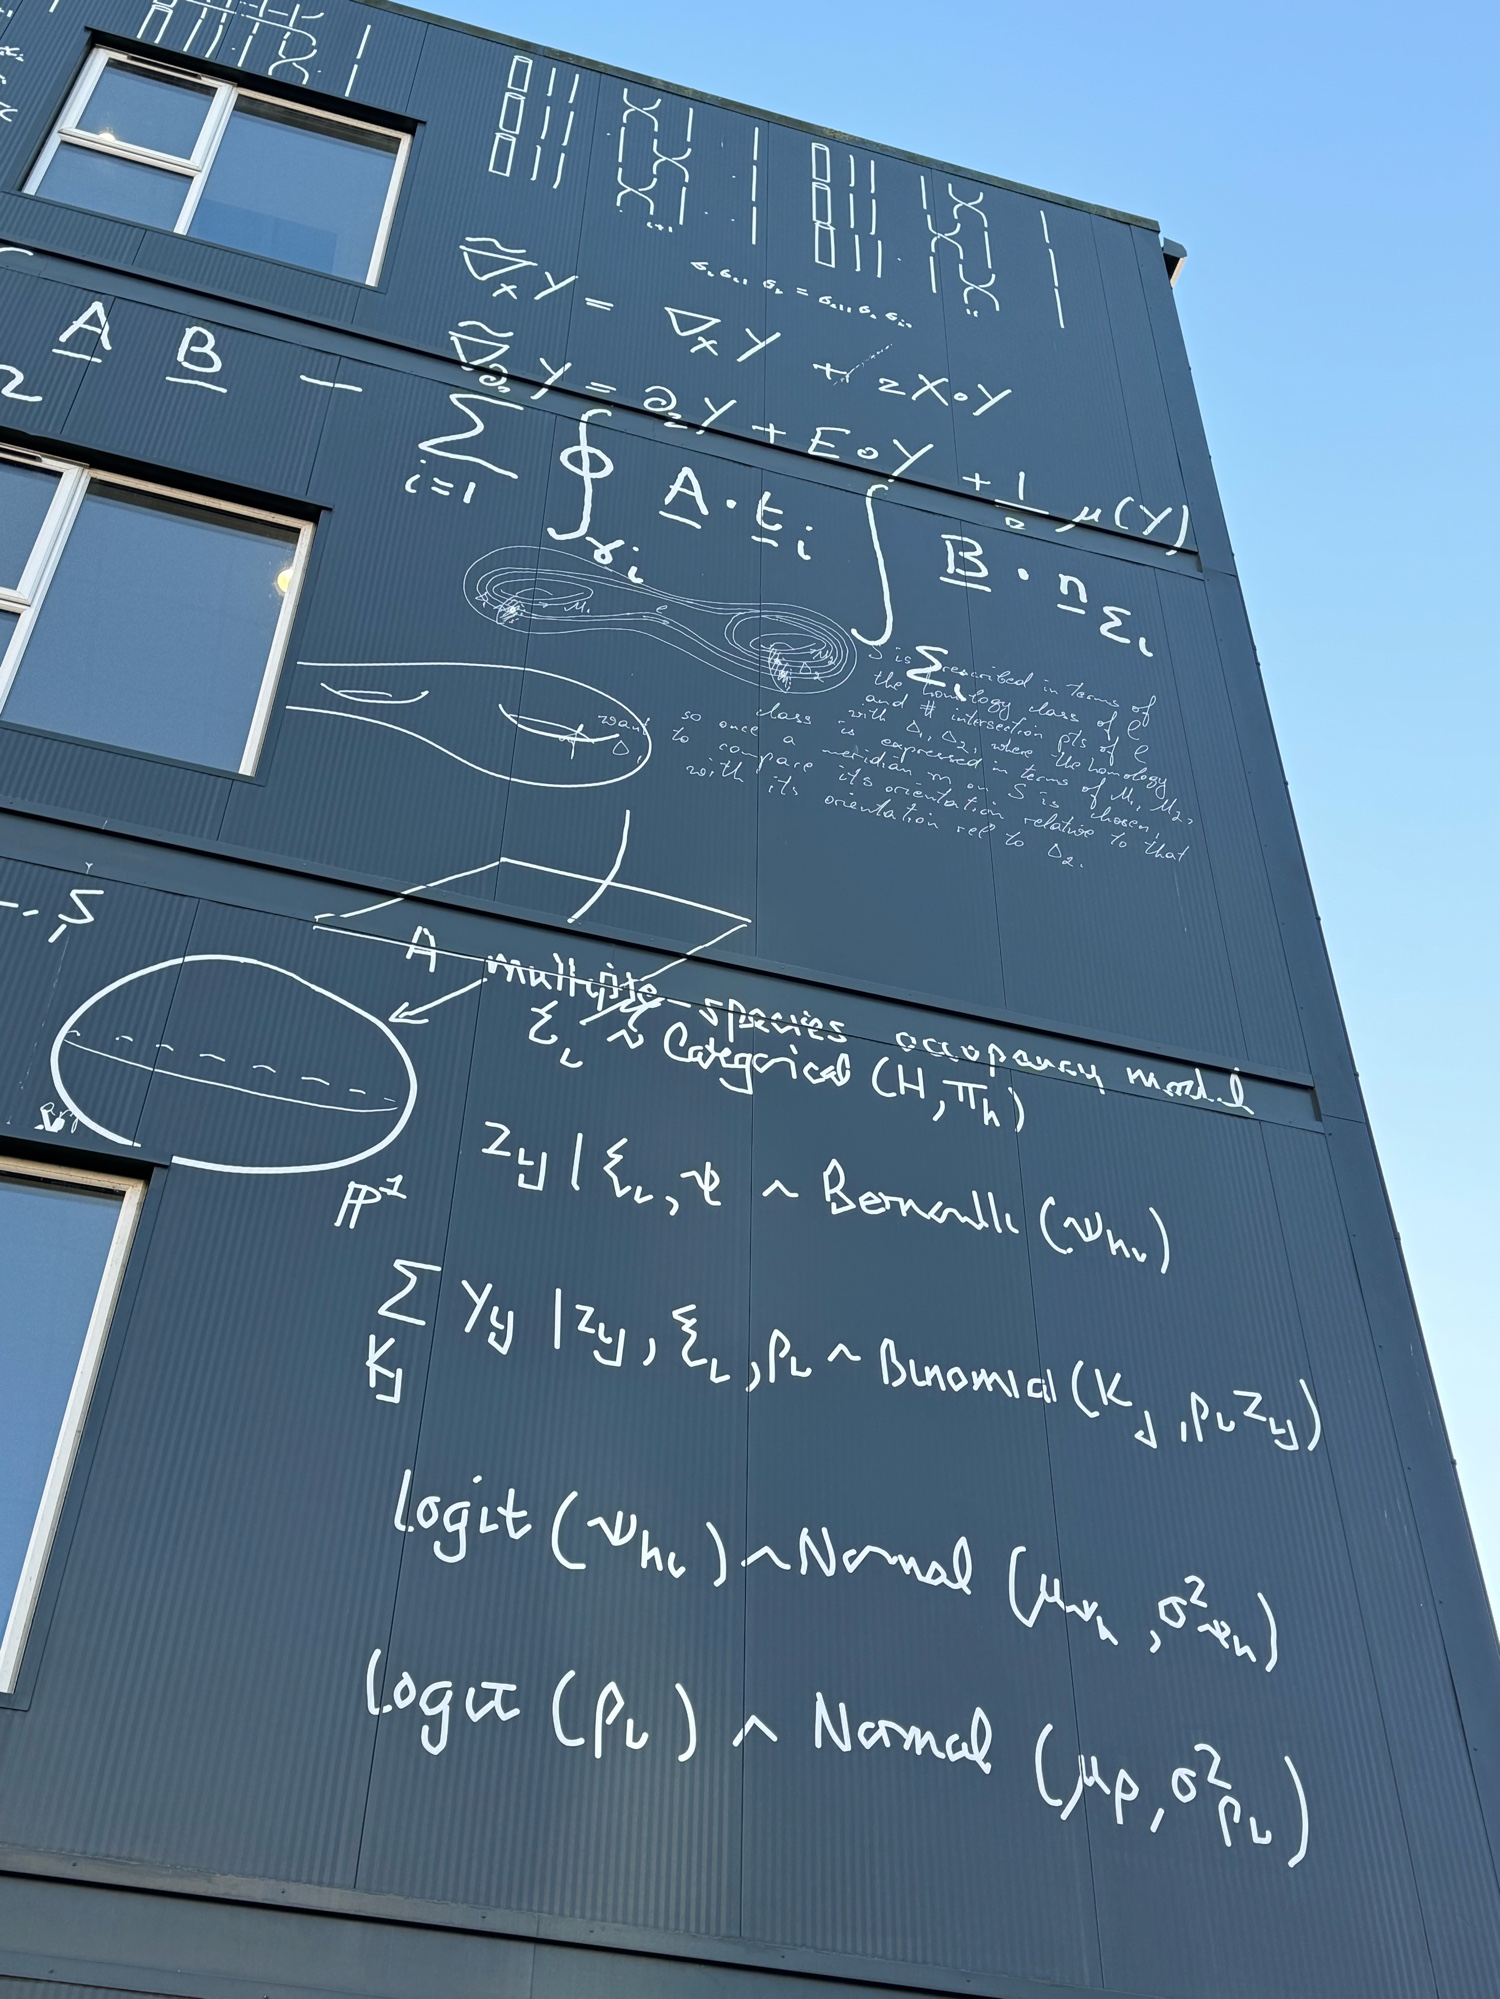 σᵢσᵢ₊₁σᵢ = σᵢ₊₁σᵢσᵢ₊₁
∇̃_X Y = ∇_X Y + zX∘Y
∇̃_∂z Y = ∂_z Y + E∘Y + 1/2 μ(Y)
A B − Σ_{i=1} ∮_{γi} A · t_i ∫_{Σi} B · n_{Σi}
2
M₁ e M₂ Δ₂
S is described in terms of
the homology class of e
and # intersection pts of e
with Δ₁, Δ₂, where the homology
class is expressed in terms of M₁, M₂,
so once a meridian m on S is chosen,
want to compare its orientation relative to that
with its orientation rel to Δ₂.
Δ
A multisite-species occupancy model
ξ_i ~ Categorical (H, π_h)
z_ij | ξ_i, ψ ~ Bernoulli (ψ_hi)
ℙ¹
Σ_{K_j} Y_ij | z_ij, ξ_i, p_i ~ Binomial (K_j, p_i z_ij)
logit (ψ_hi) ~ Normal (μ_ψh, σ²_ψh)
logit (p_i) ~ Normal (μ_p, σ²_pi)